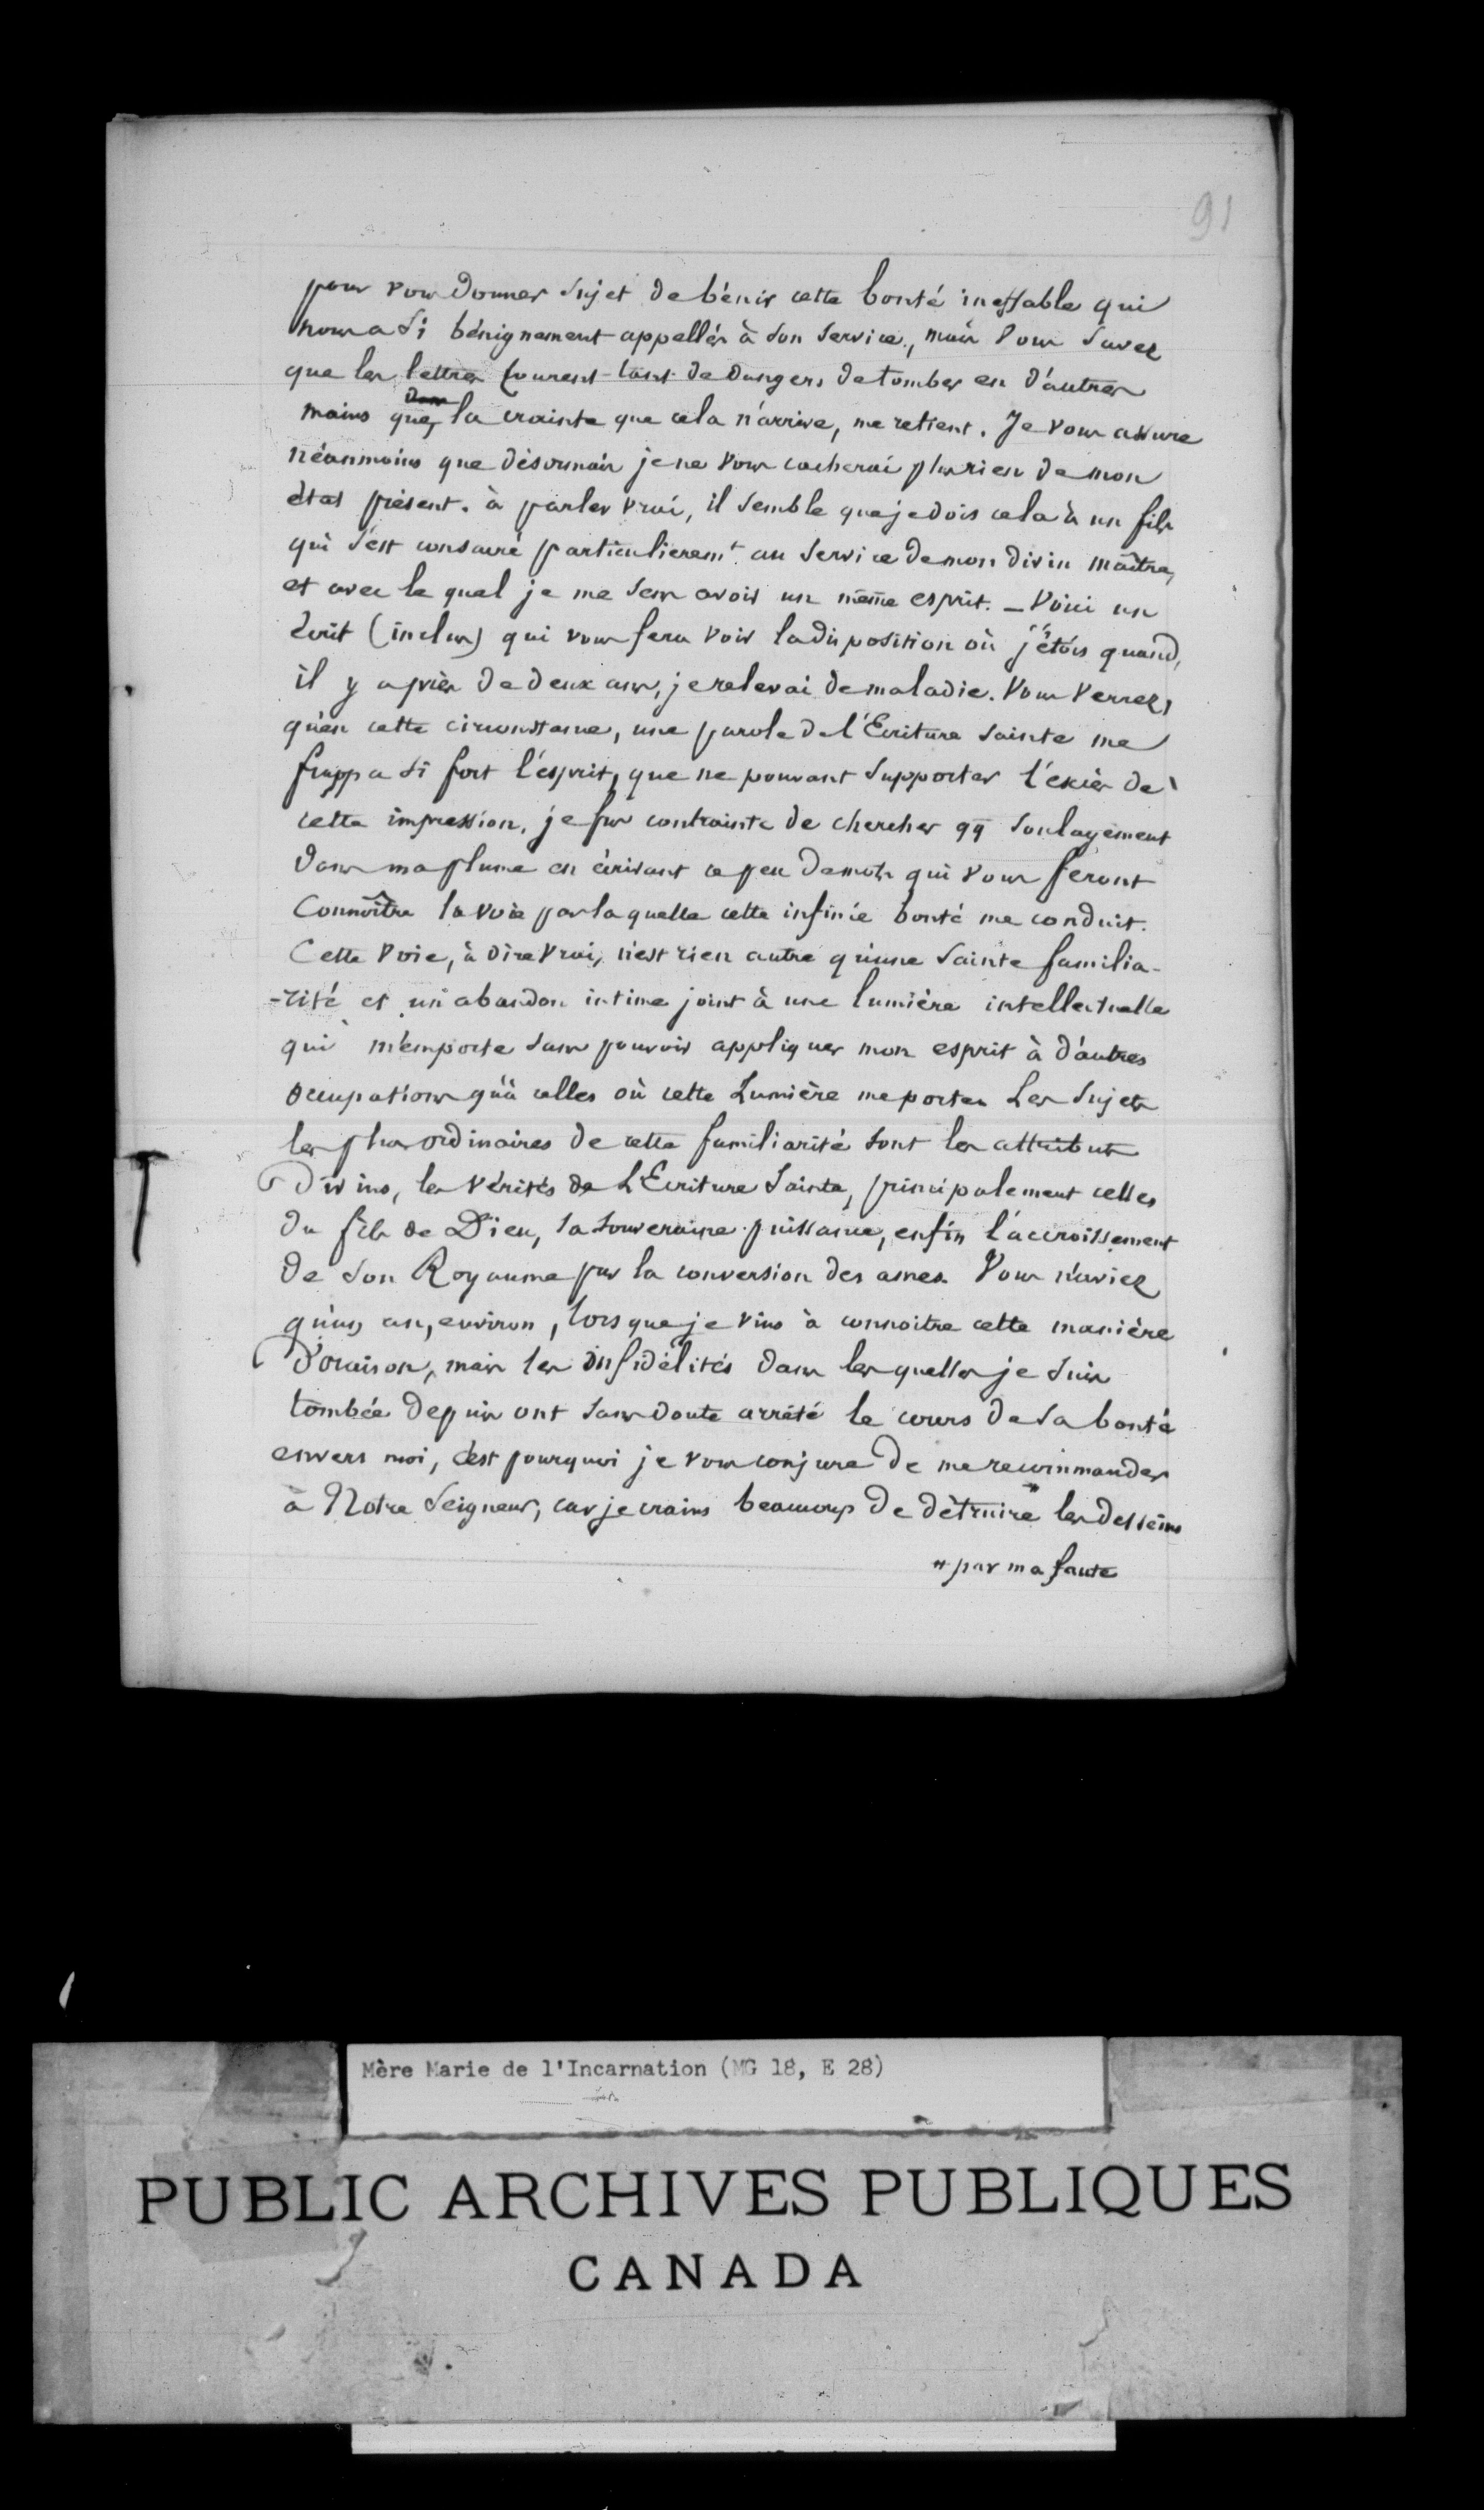 91
pour vous donner sujet de bénir cette bonté ineffable qui
nous a si bénignement appellés à son service, mais vous savez
que les lettres courent tant de dangers de tomber en d'autres
mains que la crainte que cela n'arrive, me retient. Je vous assure
néanmoins que désormais je ne vous cacherai plus rien de mon
état présent. à parler vrai, il semble que je dois cela à un fils
qui s'est consacré particulieremt. au service de mon divin maître,
et avec le quel je me sens avoir un même esprit. _ Voici un
Ecrit (inclus) qui vous fera voir la disposition où j'étois quand,
il y a près de deux ans, je relevai de maladie. Vous verrez,
qu'en cette circonstance, une parole de l'Ecriture Sainte me
frappa si fort l'esprit, que ne pouvant supporter l'excès de
cette impression, je fus contrainte de chercher qq soulagement
dans ma plume en écrivant ce peu de mots qui vous feront
Connoître la voie par laquelle cette infinie bonté me conduit.
Cette voie, à dire vrai, n'est rien autre qu'une sainte familia-
-rité et un abandon intime joint à une lumière intellectuelle
qui m'emporte sans pouvoir appliquer mon esprit à d'autres
occupations qu'à celles où cette Lumière me porte. Les sujets
les plus ordinaires de cette familiarité sont les attributs
Divins, les vérités de L'Ecriture Sainte, principalement celles
du fils de Dieu, sa souveraine puissance, enfin l'accroissement
de son Royaume par la conversion des ames. Vous n'aviez
qu'un an, environ, lors que je vins à connoitre cette manière
D'oraison, mais les infidélités dans les quelles je suis
tombée depuis ont sans doute arrêté le cours de sa bonté
envers moi, c'est pourquoi je vous conjure de me recommander
à Notre Seigneur, car je crains beaucoup de détruire # les desseins
# par ma faute
Mère Marie de l'Incarnation (MG 18, E 28)
PUBLIC ARCHIVES PUBLIQUES
CANADA